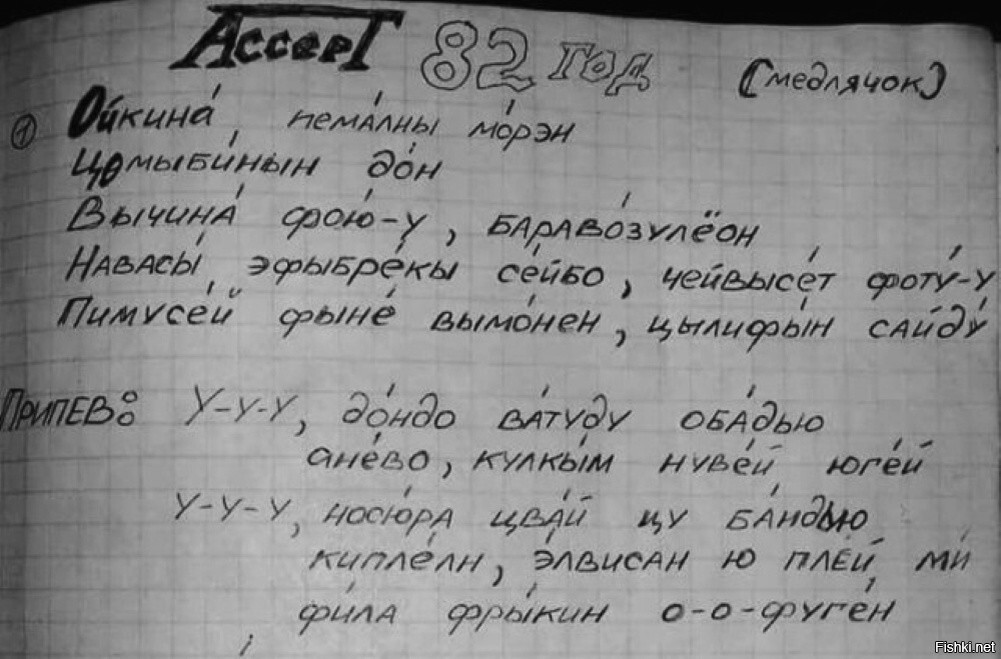 Accept 82 год (медлячок)
① Ойкина́, пема́лны мо́рэн
Цомыби́нын до́н
Вычина́ фою́-у, бараво́зулёон
Навасы́ эфыбре́кы се́йбо, чейвысе́т фоту́-у
Пимусе́й фыне́ вымо́нен, цылифы́н сайду́
Припев: У-у-у, до́ндо ва́туду оба́дью
ане́во, кулкы́м нуве́й юге́й
У-у-у, носю́ра цва́й цу ба́ндью
кипле́лн, э́лвисан ю плей ми́
фи́ла фры́кин о-о-фуге́н
Fishki.net